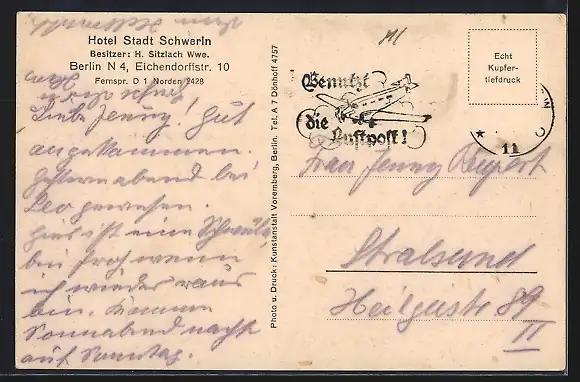 Hotel Stadt Schwerin
Besitzer: H. Sitzlach Wwe.
Berlin N 4, Eichendorffstr. 10
Fernspr. D 1 Norden 2428
Liebe Jenny! Gut
angekommen.
Gestern abend bei
Leo gewesen.
Hier ist eine Schwüle,
bin froh wenn
ich wieder raus
bin. Komme
Sonnabend nacht
auf Sonntag.
Photo u. Druck: Kunstanstalt Voremberg, Berlin. Tel. A 7 Dönhoff 4757
Benutzt
die
Luftpost!
Echt
Kupfer-
tiefdruck
* 11
Frau Jenny
Stralsund
Heilgeiststr 89
II